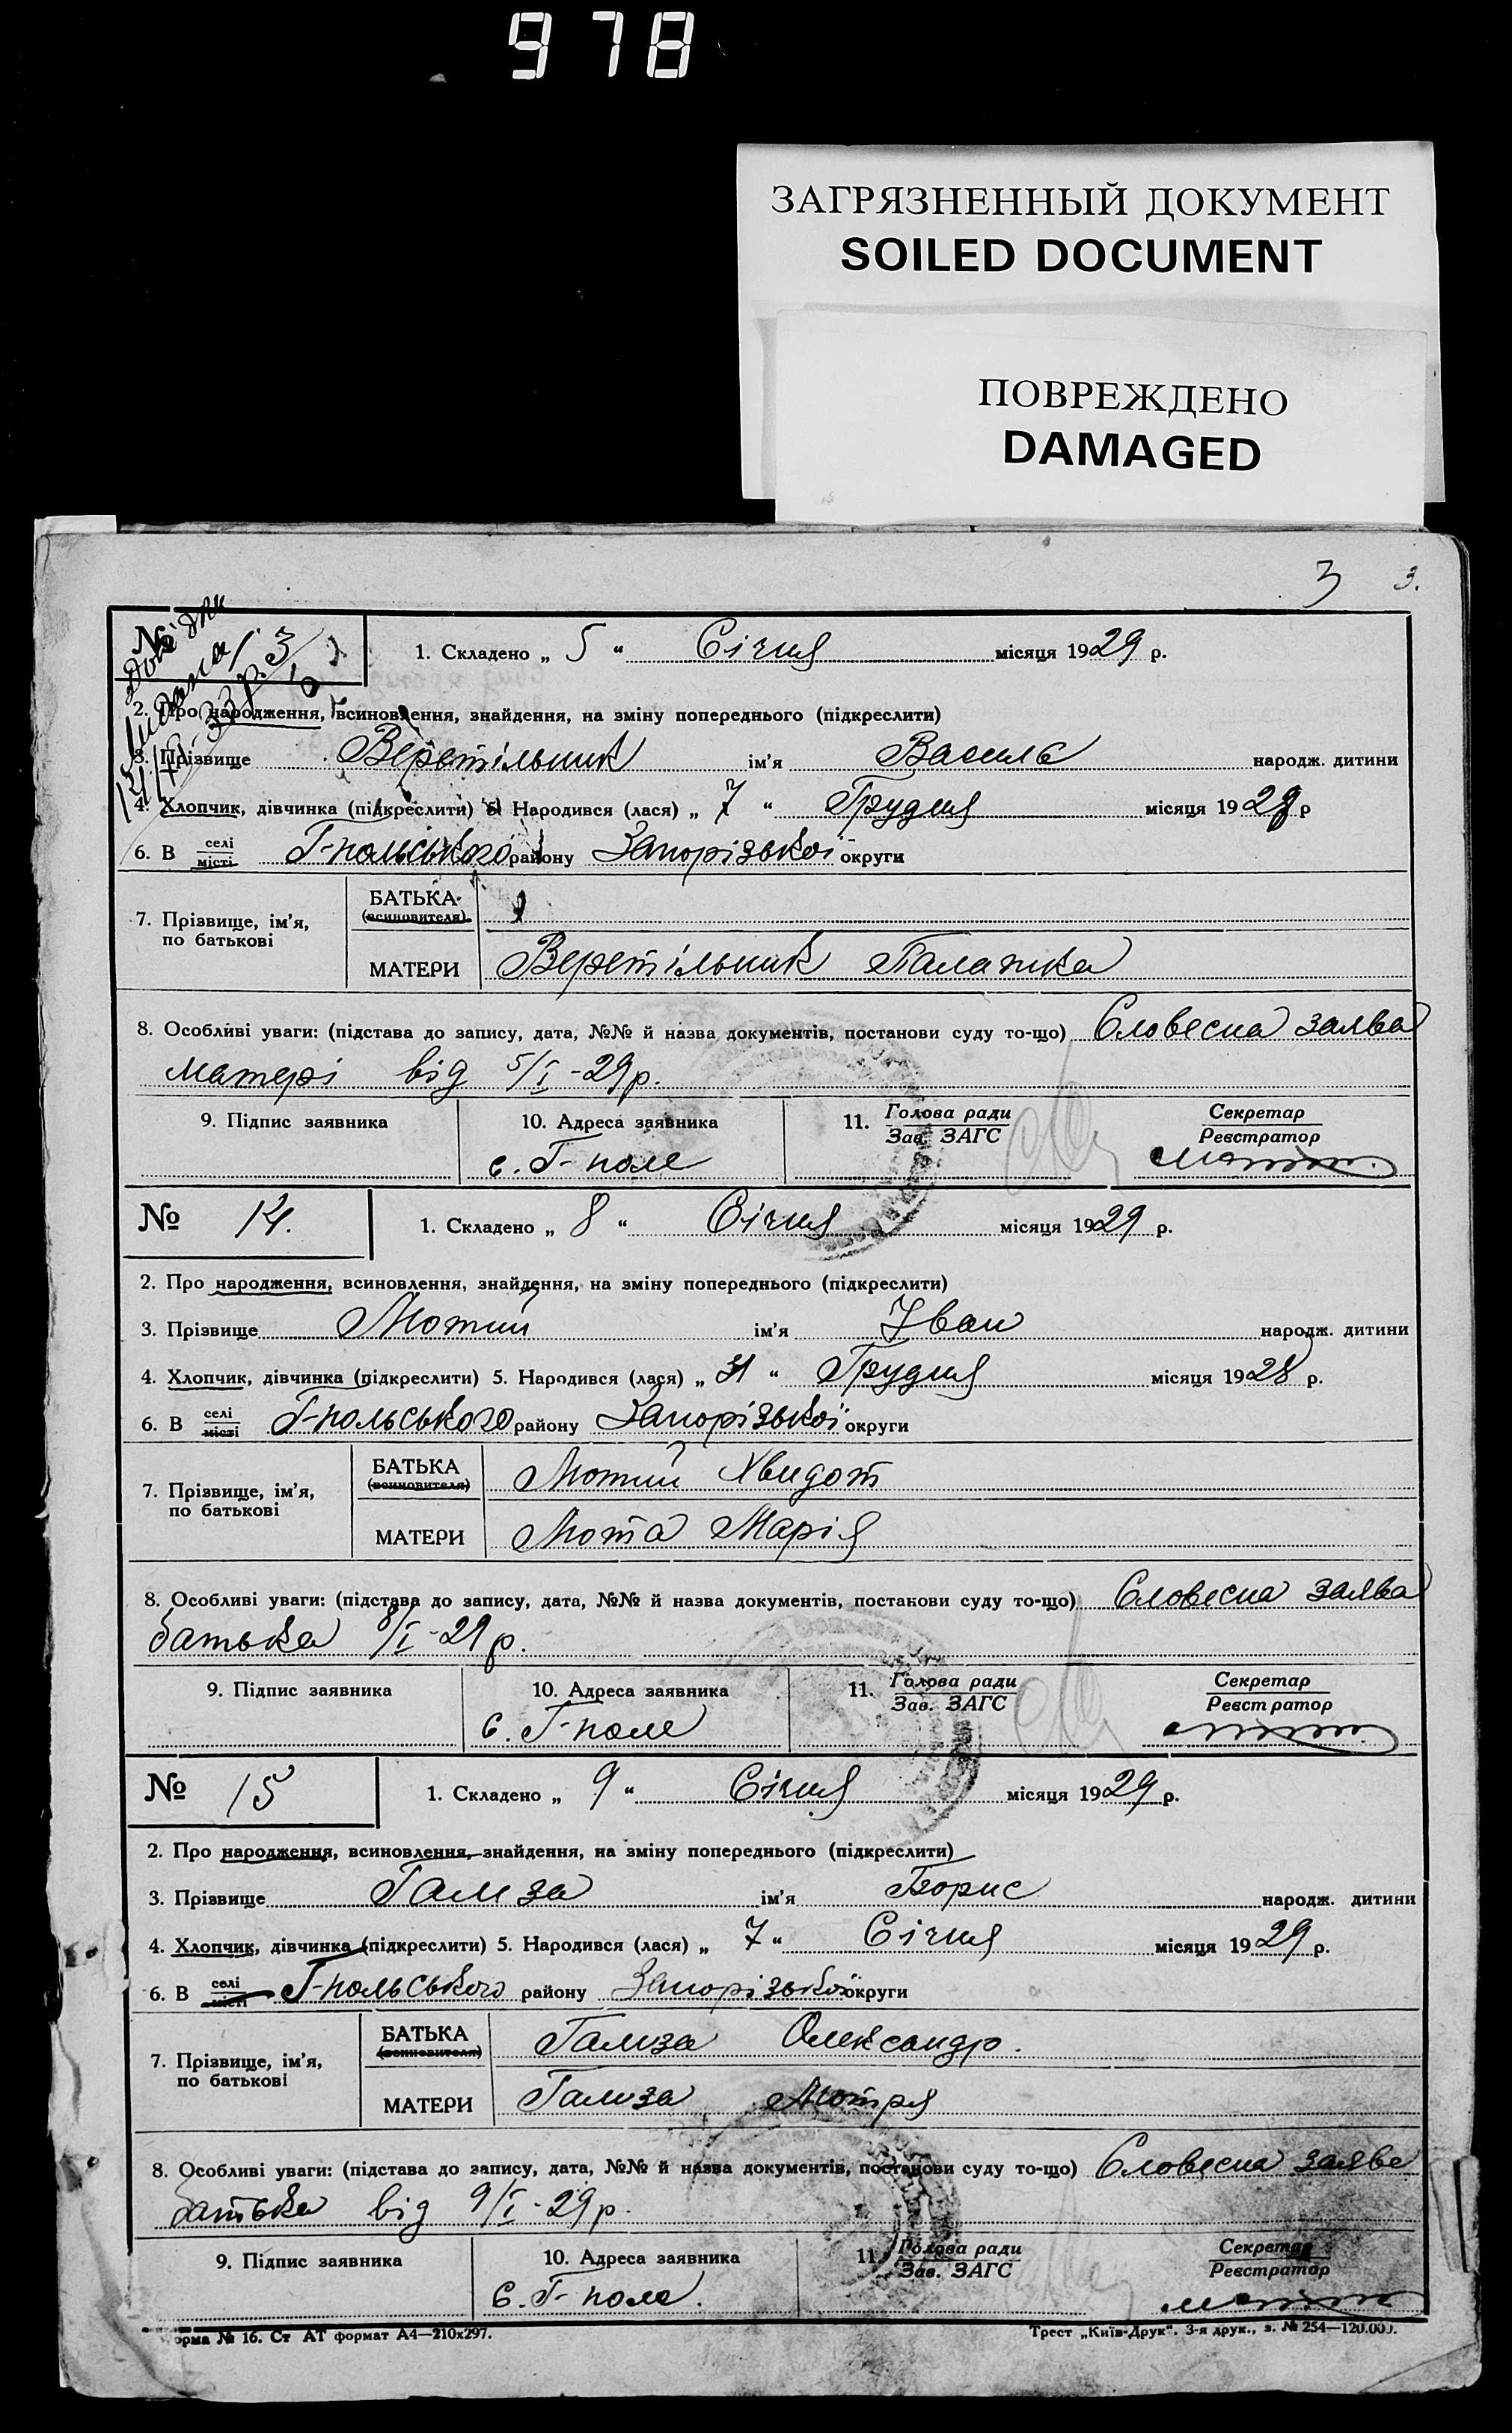 978
ЗАГРЯЗНЕННЫЙ ДОКУМЕНТ
SOILED DOCUMENT
ПОВРЕЖДЕНО
DAMAGED
3 3.
№ 13
1. Складено „ 5 “ Січня місяця 1929 р.
2. Про народження, всиновлення, знайдення, на зміну попереднього (підкреслити)
3. Прізвище Веретільник ім'я Василь народж. дитини
4. Хлопчик, дівчинка (підкреслити) 5. Народився (лася) „ 7 “ Грудня місяця 1928 р
6. В селі місті Г-польського району Запорізької округи
7. Прізвище, ім'я, по батькові
БАТЬКА (всиновителя)
МАТЕРИ Веретільник Палажка
8. Особливі уваги: (підстава до запису, дата, №№ й назва документів, постанови суду то-що) Словесна заява
матері від 5/I-29р.
9. Підпис заявника 10. Адреса заявника 11. Голова ради Зав. ЗАГС Секретар Реєстратор
с. Г-поле
№ 14. 1. Складено „ 8 “ Січня місяця 1929 р.
2. Про народження, всиновлення, знайдення, на зміну попереднього (підкреслити)
3. Прізвище Мотий ім'я Іван народж. дитини
4. Хлопчик, дівчинка (підкреслити) 5. Народився (лася) „ 31 “ Грудня місяця 1928 р.
6. В селі місті Г-польського району Запорізької округи
7. Прізвище, ім'я, по батькові
БАТЬКА (всиновителя) Мотий Хвидот
МАТЕРИ Мота Марія
8. Особливі уваги: (підстава до запису, дата, №№ й назва документів, постанови суду то-що) Словесна заява
батька 8/I-29р.
9. Підпис заявника 10. Адреса заявника 11. Голова ради Зав. ЗАГС Секретар Реєстратор
с. Г-поле
№ 15 1. Складено „ 9 “ Січня місяця 1929 р.
2. Про народження, всиновлення, знайдення, на зміну попереднього (підкреслити)
3. Прізвище Гамза ім'я Борис народж. дитини
4. Хлопчик, дівчинка (підкреслити) 5. Народився (лася) „ 7 “ Січня місяця 1929 р.
6. В селі місті Г-польського району Запорізької округи
7. Прізвище, ім'я, по батькові
БАТЬКА (всиновителя) Гамза Олександр.
МАТЕРИ Гамза Мотря
8. Особливі уваги: (підстава до запису, дата, №№ й назва документів, постанови суду то-що) Словесна заява
батька від 9/I-29р.
9. Підпис заявника 10. Адреса заявника 11. Голова ради Зав. ЗАГС Секретар Реєстратор
с. Г-поле.
Форма № 16. Ст АТ формат А4—210х297.
Трест „Київ-Друк“. 3-я друк., з. № 254—120.000.